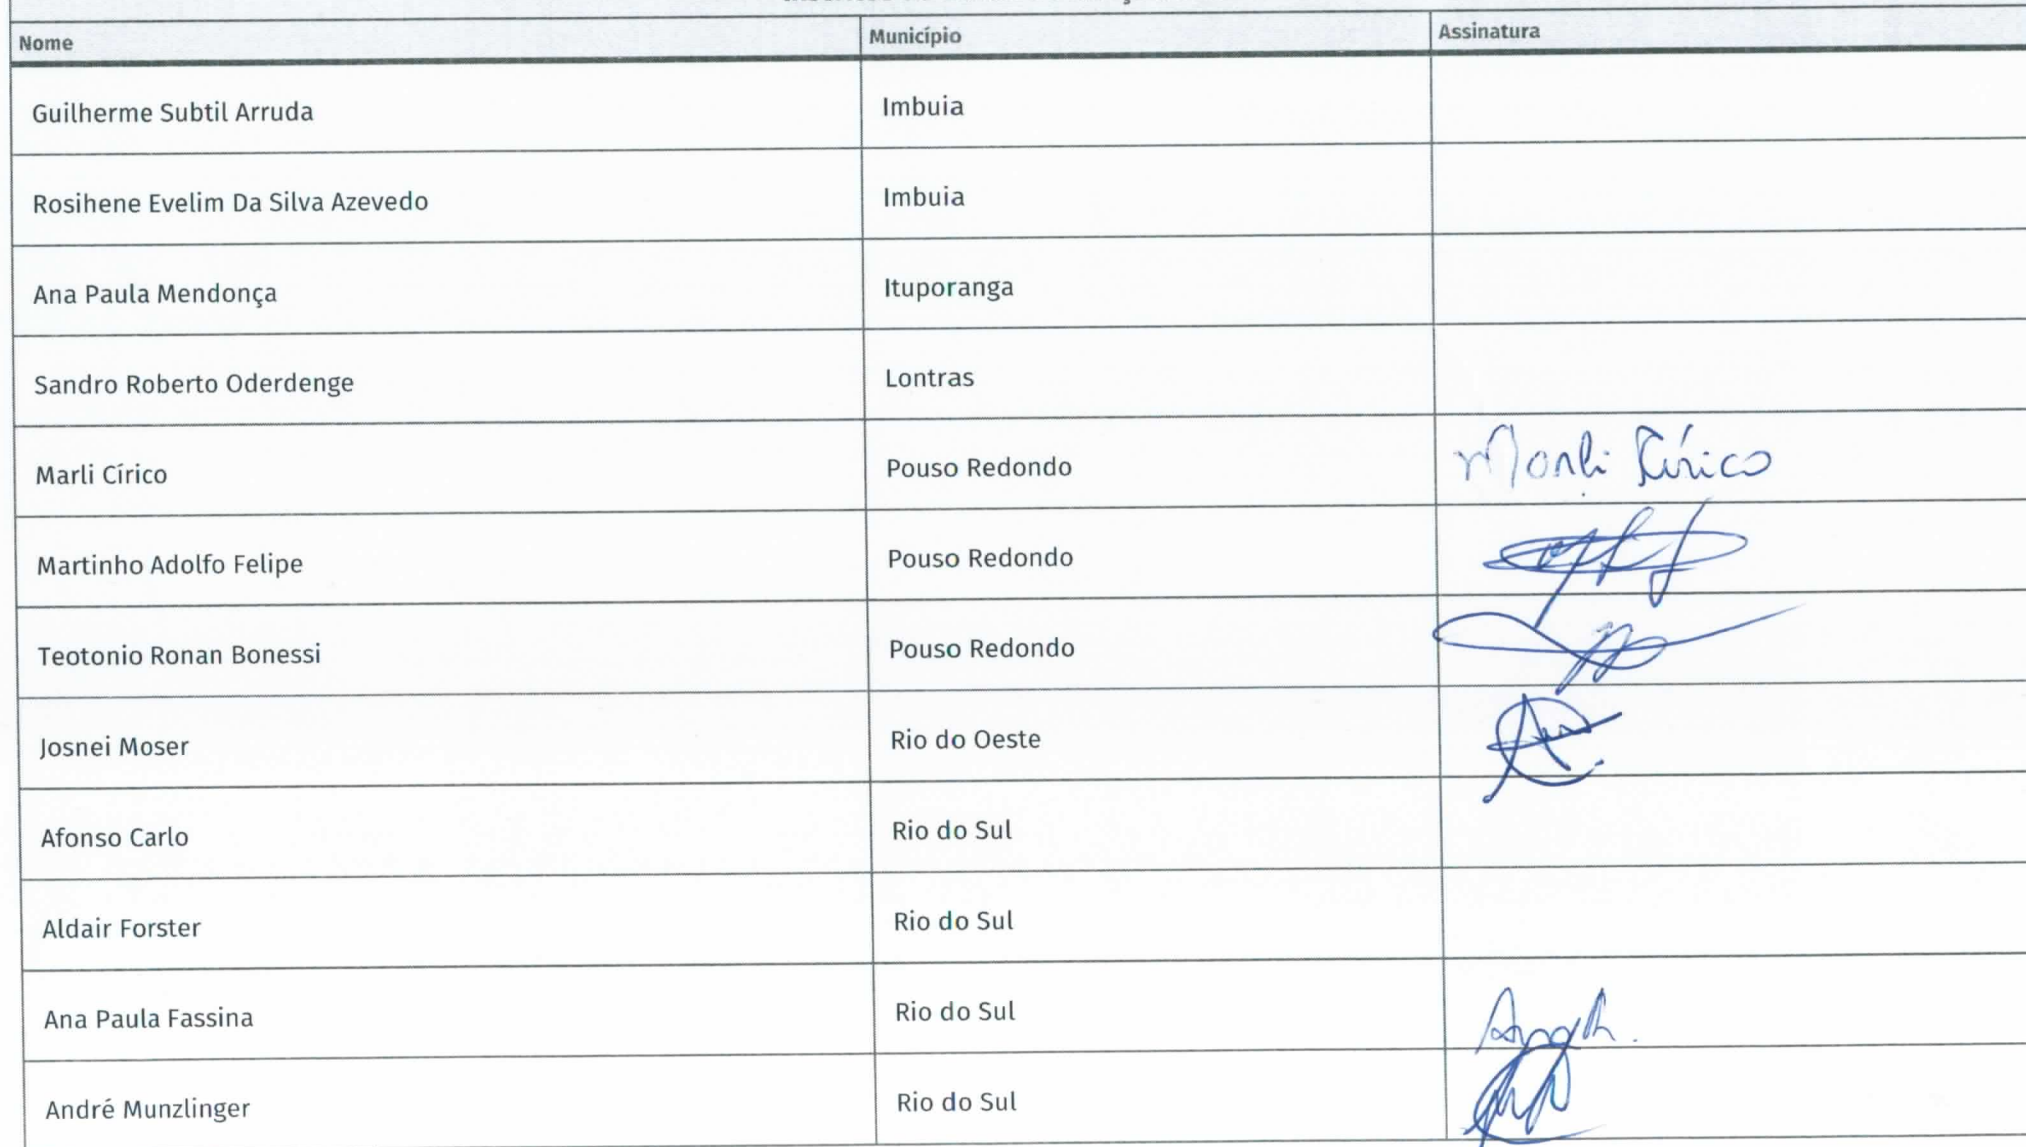 Nome Município Assinatura
Guilherme Subtil Arruda Imbuia
Rosihene Evelim Da Silva Azevedo Imbuia
Ana Paula Mendonça Ituporanga
Sandro Roberto Oderdenge Lontras
Marli Círico Pouso Redondo Marli Círico
Martinho Adolfo Felipe Pouso Redondo
Teotonio Ronan Bonessi Pouso Redondo
Josnei Moser Rio do Oeste
Afonso Carlo Rio do Sul
Aldair Forster Rio do Sul
Ana Paula Fassina Rio do Sul
André Munzlinger Rio do Sul